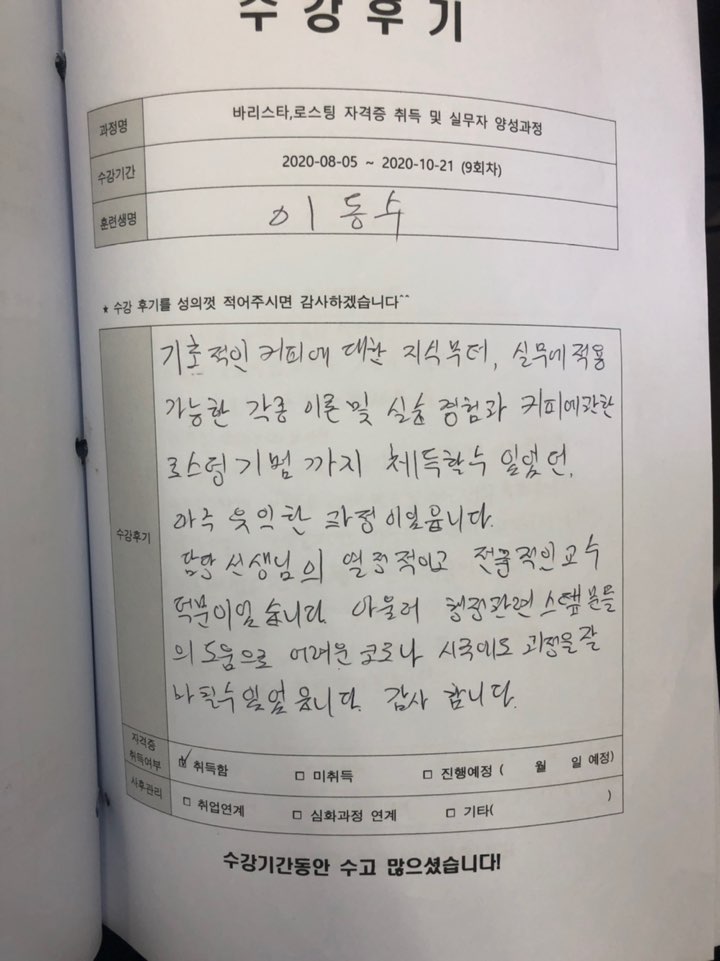 수강후기
과정명 바리스타,로스팅 자격증 취득 및 실무자 양성과정
수강기간 2020-08-05 ~ 2020-10-21 (9회차)
훈련생명 이동수
* 수강 후기를 성의껏 적어주시면 감사하겠습니다^^
수강후기
기초적인 커피에 대한 지식부터, 실무에 적용
가능한 각종 이론 및 실습 경험과 커피에 관한
로스팅 기법 까지 체득할수 있었던,
아주 유익한 과정이었읍니다.
담당 선생님의 열정적이고 전문적인 교수
덕분이었습니다. 아울러 행정관련 스탭분들
의 도움으로 어려운 코로나 시국에도 과정을 잘
마칠수 있었읍니다. 감사 합니다.
자격증 취득여부 ☑ 취득함 □ 미취득 □ 진행예정 ( 월 일 예정)
사후관리 □ 취업연계 □ 심화과정 연계 □ 기타( )
수강기간동안 수고 많으셨습니다!